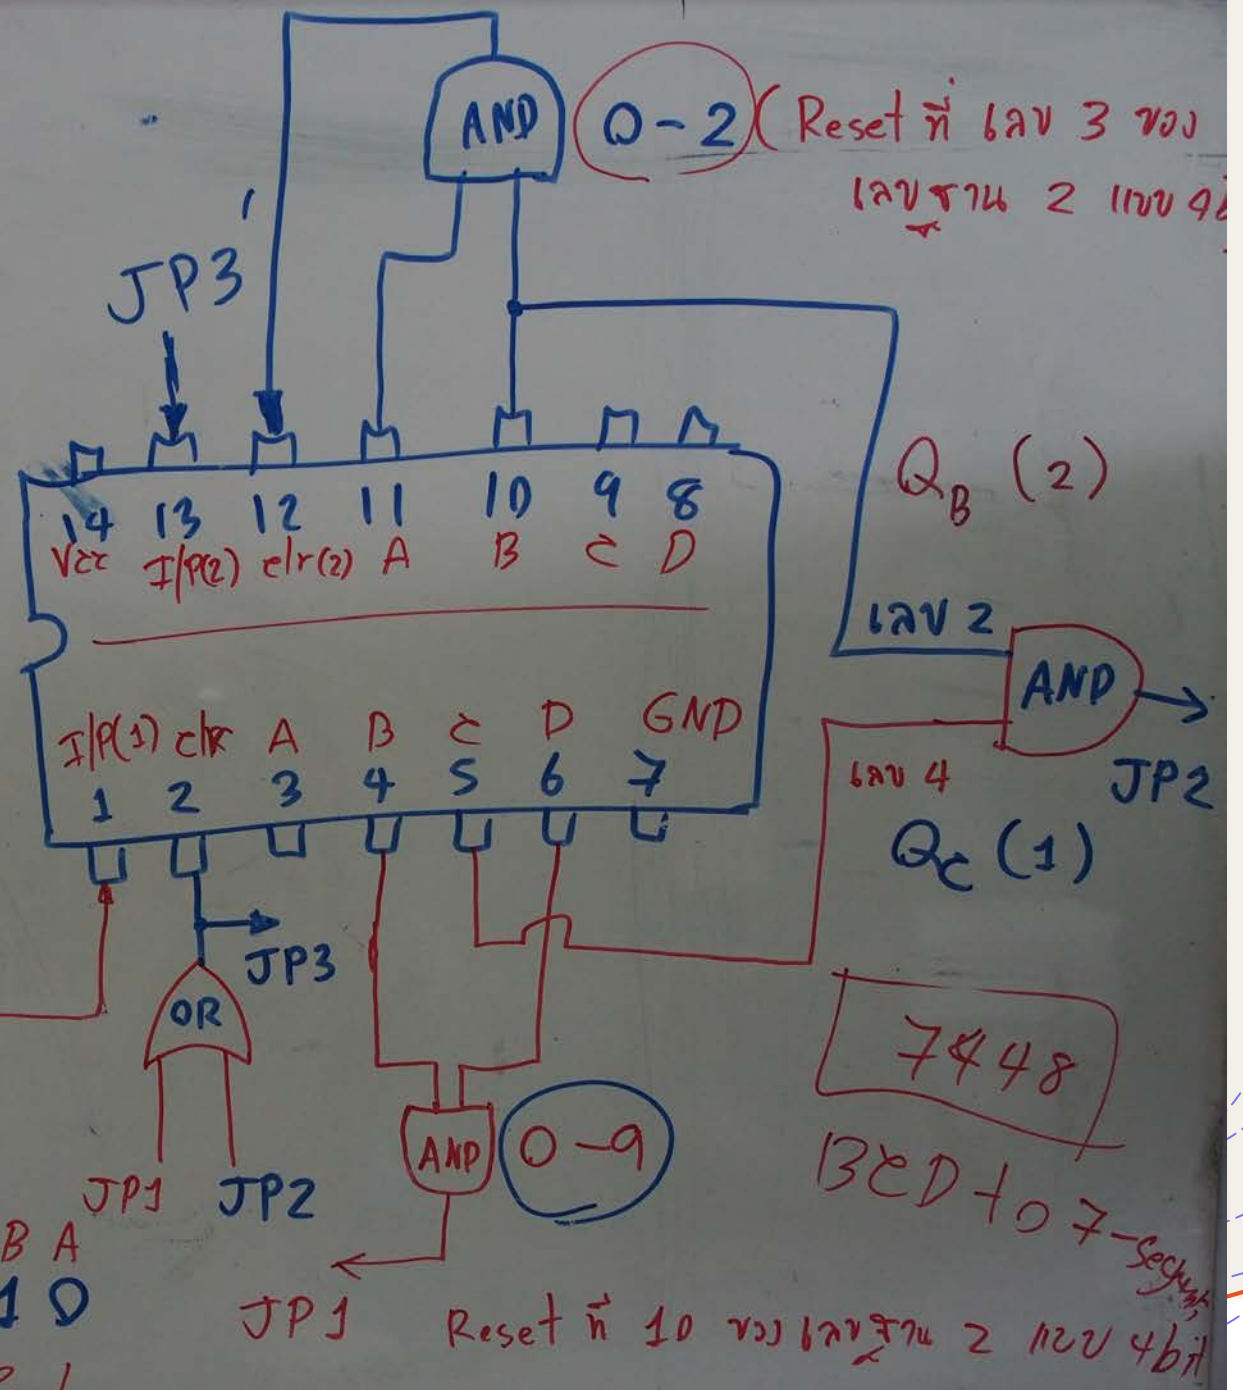 AND
0-2 (Reset ที่ เลข 3 ของ
เลขฐาน 2 แบบ
JP3
14 13 12 11 10 9 8
Vcc I/P(2) clr(2) A B C D
QB (2)
เลข 2
AND
JP2
I/P(1) clr A B C D GND
1 2 3 4 5 6 7
เลข 4
QC (1)
JP3
OR
7448
BCD to 7-segment
AND 0-9
JP1 JP2
B A
1 0
JP1
Reset ที่ 10 ของ เลขฐาน 2 แบบ 4bit